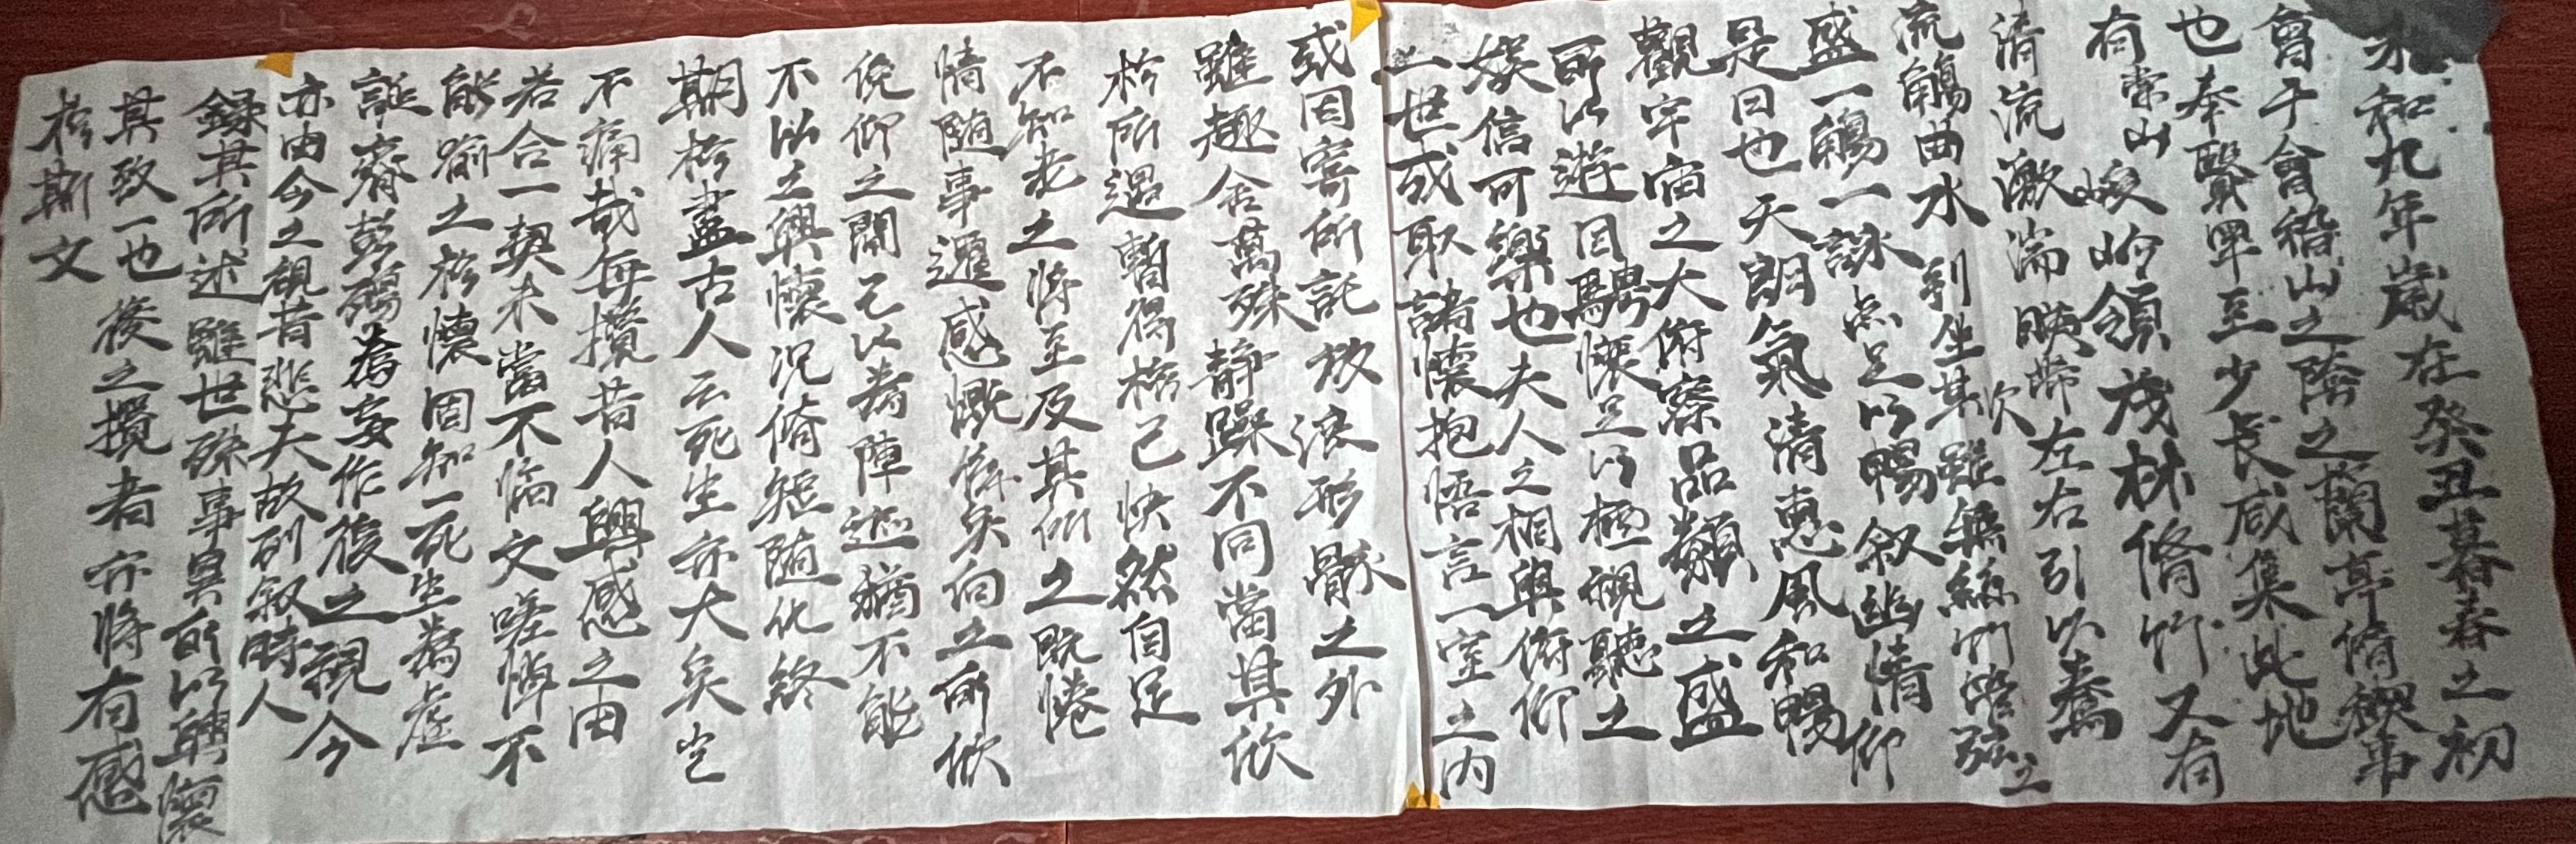 永和九年歲在癸丑暮春之初
會于會稽山之陰之蘭亭脩禊事
也奉賢畢至少長咸集此地
有崇山峻岭領茂林脩竹又有
清流激湍暎帶左右引以為
流觴曲水列坐其次雖無絲竹管弦之
盛一觴一詠亦足以暢叙幽情仰
是日也天朗氣清惠風和暢
觀宇宙之大俯察品類之盛
所以遊目騁懷足以極視聽之
娛信可樂也夫人之相與俯仰
一世或取諸懷抱悟言一室之內
或因寄所託放浪形骸之外
雖趣舍萬殊靜躁不同當其欣
於所遇暫得於己快然自足
不知老之將至及其所之既惓
情隨事遷感慨係矣向之所欣
俛仰之間已以為陳迹猶不能
不以之興懷況脩短隨化終
期於盡古人云死生亦大矣豈
不痛哉每攬昔人興感之由
若合一契未嘗不臨文嗟悼不
能喻之於懷固知一死生為虛
誕齊彭殤為妄作後之視今
亦由今之視昔悲夫故列叙時人
錄其所述雖世殊事異所以興懷
其致一也後之攬者亦將有感
於斯文